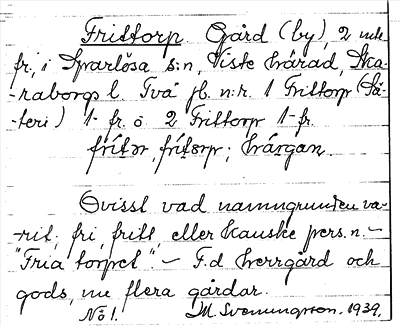 Frittorp Gård (by), 2 mtl
fr, i Sparlösa s:n, Viste härad, Ska-
-raborgs l. Två jb. n:r. 1 Frittorp (Sä-
-teri) 1- fr. o 2 Frittorp 1- fr.
frítər, frítorp; hä́rgan.
Ovisst vad namngrunden va-
-rit; fri, fritt, eller kanske pers.n. -
"Fria torpet" - F.d. herrgård och
gods, nu flera gårdar.
No 1. M. Svenungsson. 1939.